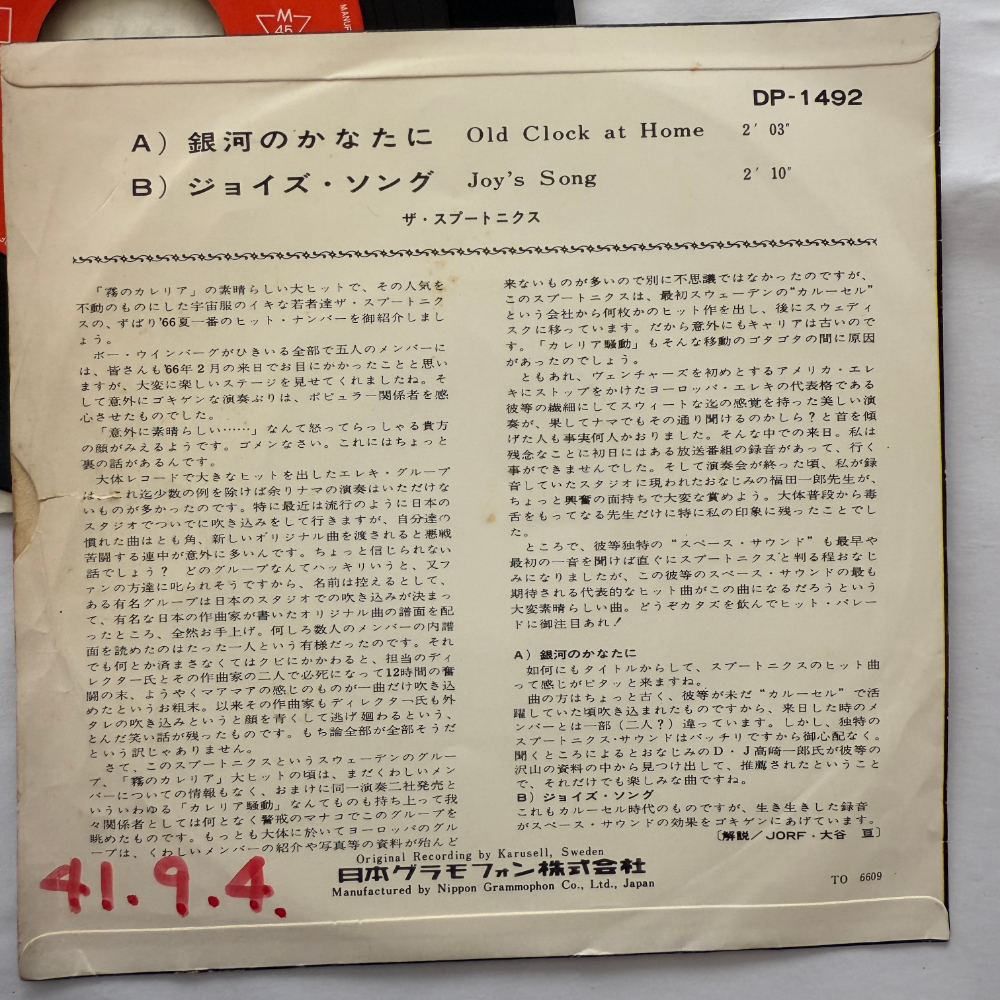 M
45
MANUF
DP-1492
A) 銀河のかなたに Old Clock at Home 2′ 03″
B) ジョイズ・ソング Joy's Song 2′ 10″
ザ・スプートニクス
「霧のカレリア」の素晴らしい大ヒットで、その人気を
不動のものにした宇宙服のイキな若者達ザ・スプートニク
スの、ずばり'66夏一番のヒット・ナンバーを御紹介しまし
ょう。
ボー・ウインバーグがひきいる全部で五人のメンバーに
は、皆さんも'66年2月の来日でお目にかかったことと思い
ますが、大変に楽しいステージを見せてくれましたね。そ
して意外にゴキゲンな演奏ぶりは、ポピュラー関係者を感
心させたものでした。
「意外に素晴らしい……」なんて怒ってらっしゃる貴方
の顔がみえるようです。ゴメンなさい。これにはちょっと
裏の話があるんです。
大体レコードで大きなヒットを出したエレキ・グループ
は、これ迄少数の例を除けば余りナマの演奏はいただけな
いものが多かったのです。特に最近は流行のように日本の
スタジオでついでに吹き込みをして行きますが、自分達の
慣れた曲はとも角、新しいオリジナル曲を渡されると悪戦
苦闘する連中が意外に多いんです。ちょっと信じられない
話でしょう? どのグループなんてハッキリいうと、又フ
ァンの方達に叱られそうですから、名前は控えるとして、
ある有名グループは日本のスタジオでの吹き込みが決まっ
て、有名な日本の作曲家が書いたオリジナル曲の譜面を配
ったところ、全然お手上げ。何しろ数人のメンバーの内譜
面を読めたのはたった一人という有様だったのです。それ
でも何とか済まさなくてはクビにかかわると、担当のディ
レクター氏とその作曲家の二人で必死になって12時間の奮
闘の末、ようやくマアマアの感じのものが一曲だけ吹き込
めたというお粗末。以来その作曲家もディレクター氏も外
タレの吹き込みというと顔を青くして逃げ廻わるという、
とんだ笑い話が残ったものです。もち論全部が全部そうだ
という訳じゃありません。
さて、このスプートニクスというスウェーデンのグルー
プ、「霧のカレリア」大ヒットの頃は、まだくわしいメン
バーについての情報もなく、おまけに同一演奏二社発売と
いういわゆる「カレリア騒動」なんてものも持ち上って我
々関係者としては何となく警戒のマナコでこのグループを
眺めたものです。もっとも大体に於いてヨーロッパのグル
ープは、くわしいメンバーの紹介や写真等の資料が殆んど
来ないものが多いので別に不思議ではなかったのですが、
このスプートニクスは、最初スウェーデンの“カルーセル”
という会社から何枚かのヒット作を出し、後にスウェディ
スクに移っています。だから意外にもキャリアは古いので
す。「カレリア騒動」もそんな移動のゴタゴタの間に原因
があったのでしょう。
ともあれ、ヴェンチャーズを初めとするアメリカ・エレ
キにストップをかけたヨーロッパ・エレキの代表格である
彼等の繊細にしてスウィートな迄の感覚を持った美しい演
奏が、果してナマでもその通り聞けるのかしら?と首を傾
げた人も事実何人かおりました。そんな中での来日。私は
残念なことに初日にはある放送番組の録音があって、行く
事ができませんでした。そして演奏会が終った頃、私が録
音していたスタジオに現われたおなじみの福田一郎先生が、
ちょっと興奮の面持ちで大変な賞めよう。大体普段から毒
舌をもってなる先生だけに特に私の印象に残ったことでし
た。
ところで、彼等独特の“スペース・サウンド”も最早や
最初の一音を聞けば直ぐにスプートニクスと判る程おなじ
みになりましたが、この彼等のスペース・サウンドの最も
期待される代表的なヒット曲がこの曲になるだろうという
大変素晴らしい曲。どうぞカタズを飲んでヒット・パレー
ドに御注目あれ!
A) 銀河のかなたに
如何にもタイトルからして、スプートニクスのヒット曲
って感じがピタッと来ますね。
曲の方はちょっと古く、彼等が未だ“カルーセル”で活
躍していた頃吹き込まれたものですから、来日した時のメ
ンバーとは一部(二人?)違っています。しかし、独特の
スプートニクス・サウンドはバッチリですから御心配なく。
聞くところによるとおなじみのD・J高崎一郎氏が彼等の
沢山の資料の中から見つけ出して、推薦されたということ
で、それだけでも楽しみな曲ですね。
B) ジョイズ・ソング
これもカルーセル時代のものですが、生き生きした録音
がスペース・サウンドの効果をゴキゲンにあげています。
〔解説/JORF・大谷 亘〕
Original Recording by Karusell, Sweden
日本グラモフォン株式会社
Manufactured by Nippon Grammophon Co., Ltd., Japan
TO 6609
41.9.4.